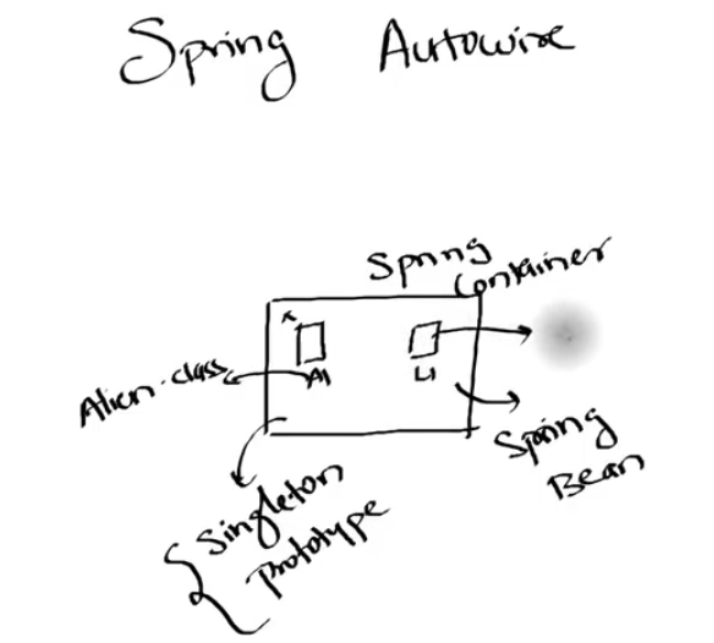 Spring Autowire
Spring
Container
Alien.class
A1
L1
Spring
Bean
Singleton
Prototype